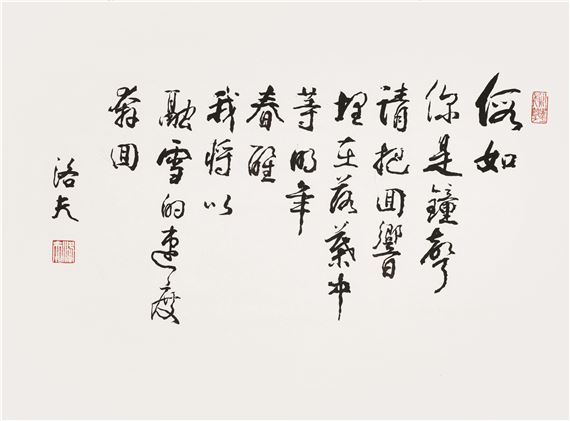 假如
你是鐘聲
請把回響
埋在落葉中
等明年
春醒
我將以
融雪的速度
奔回
洛夫